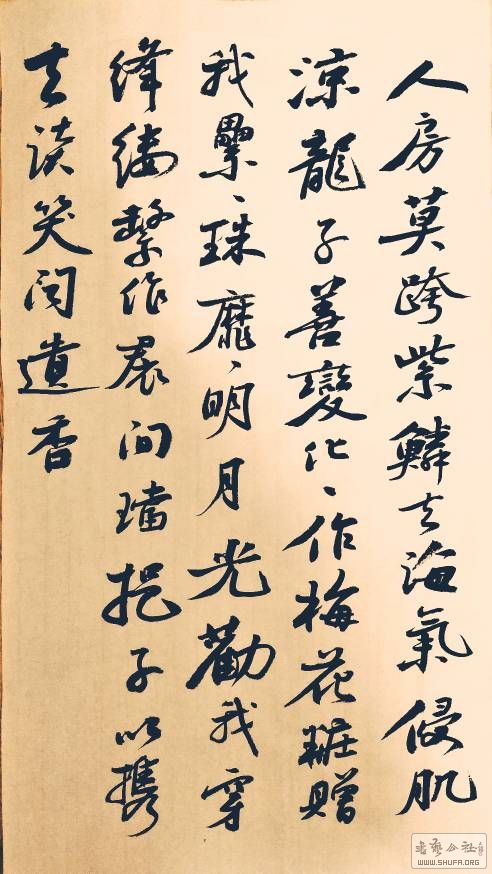 人房莫跨紫鱗去海氣侵肌
涼龍子善變化、作梅花粧贈
我纍、珠靡、明月光勸我穿
絳縷繫作裙間璫挹子以攜
去談笑聞遺香
WWW.SHUFA.ORG